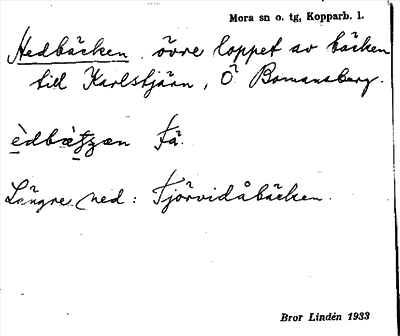 Mora sn o. tg, Kopparb. l.
Hedbäcken övre loppet av bäcken
till Karlstjärn, Ö Bomansberg.
få.
Längre ned: Fjörvidåbäcken.
Bror Lindén 1933